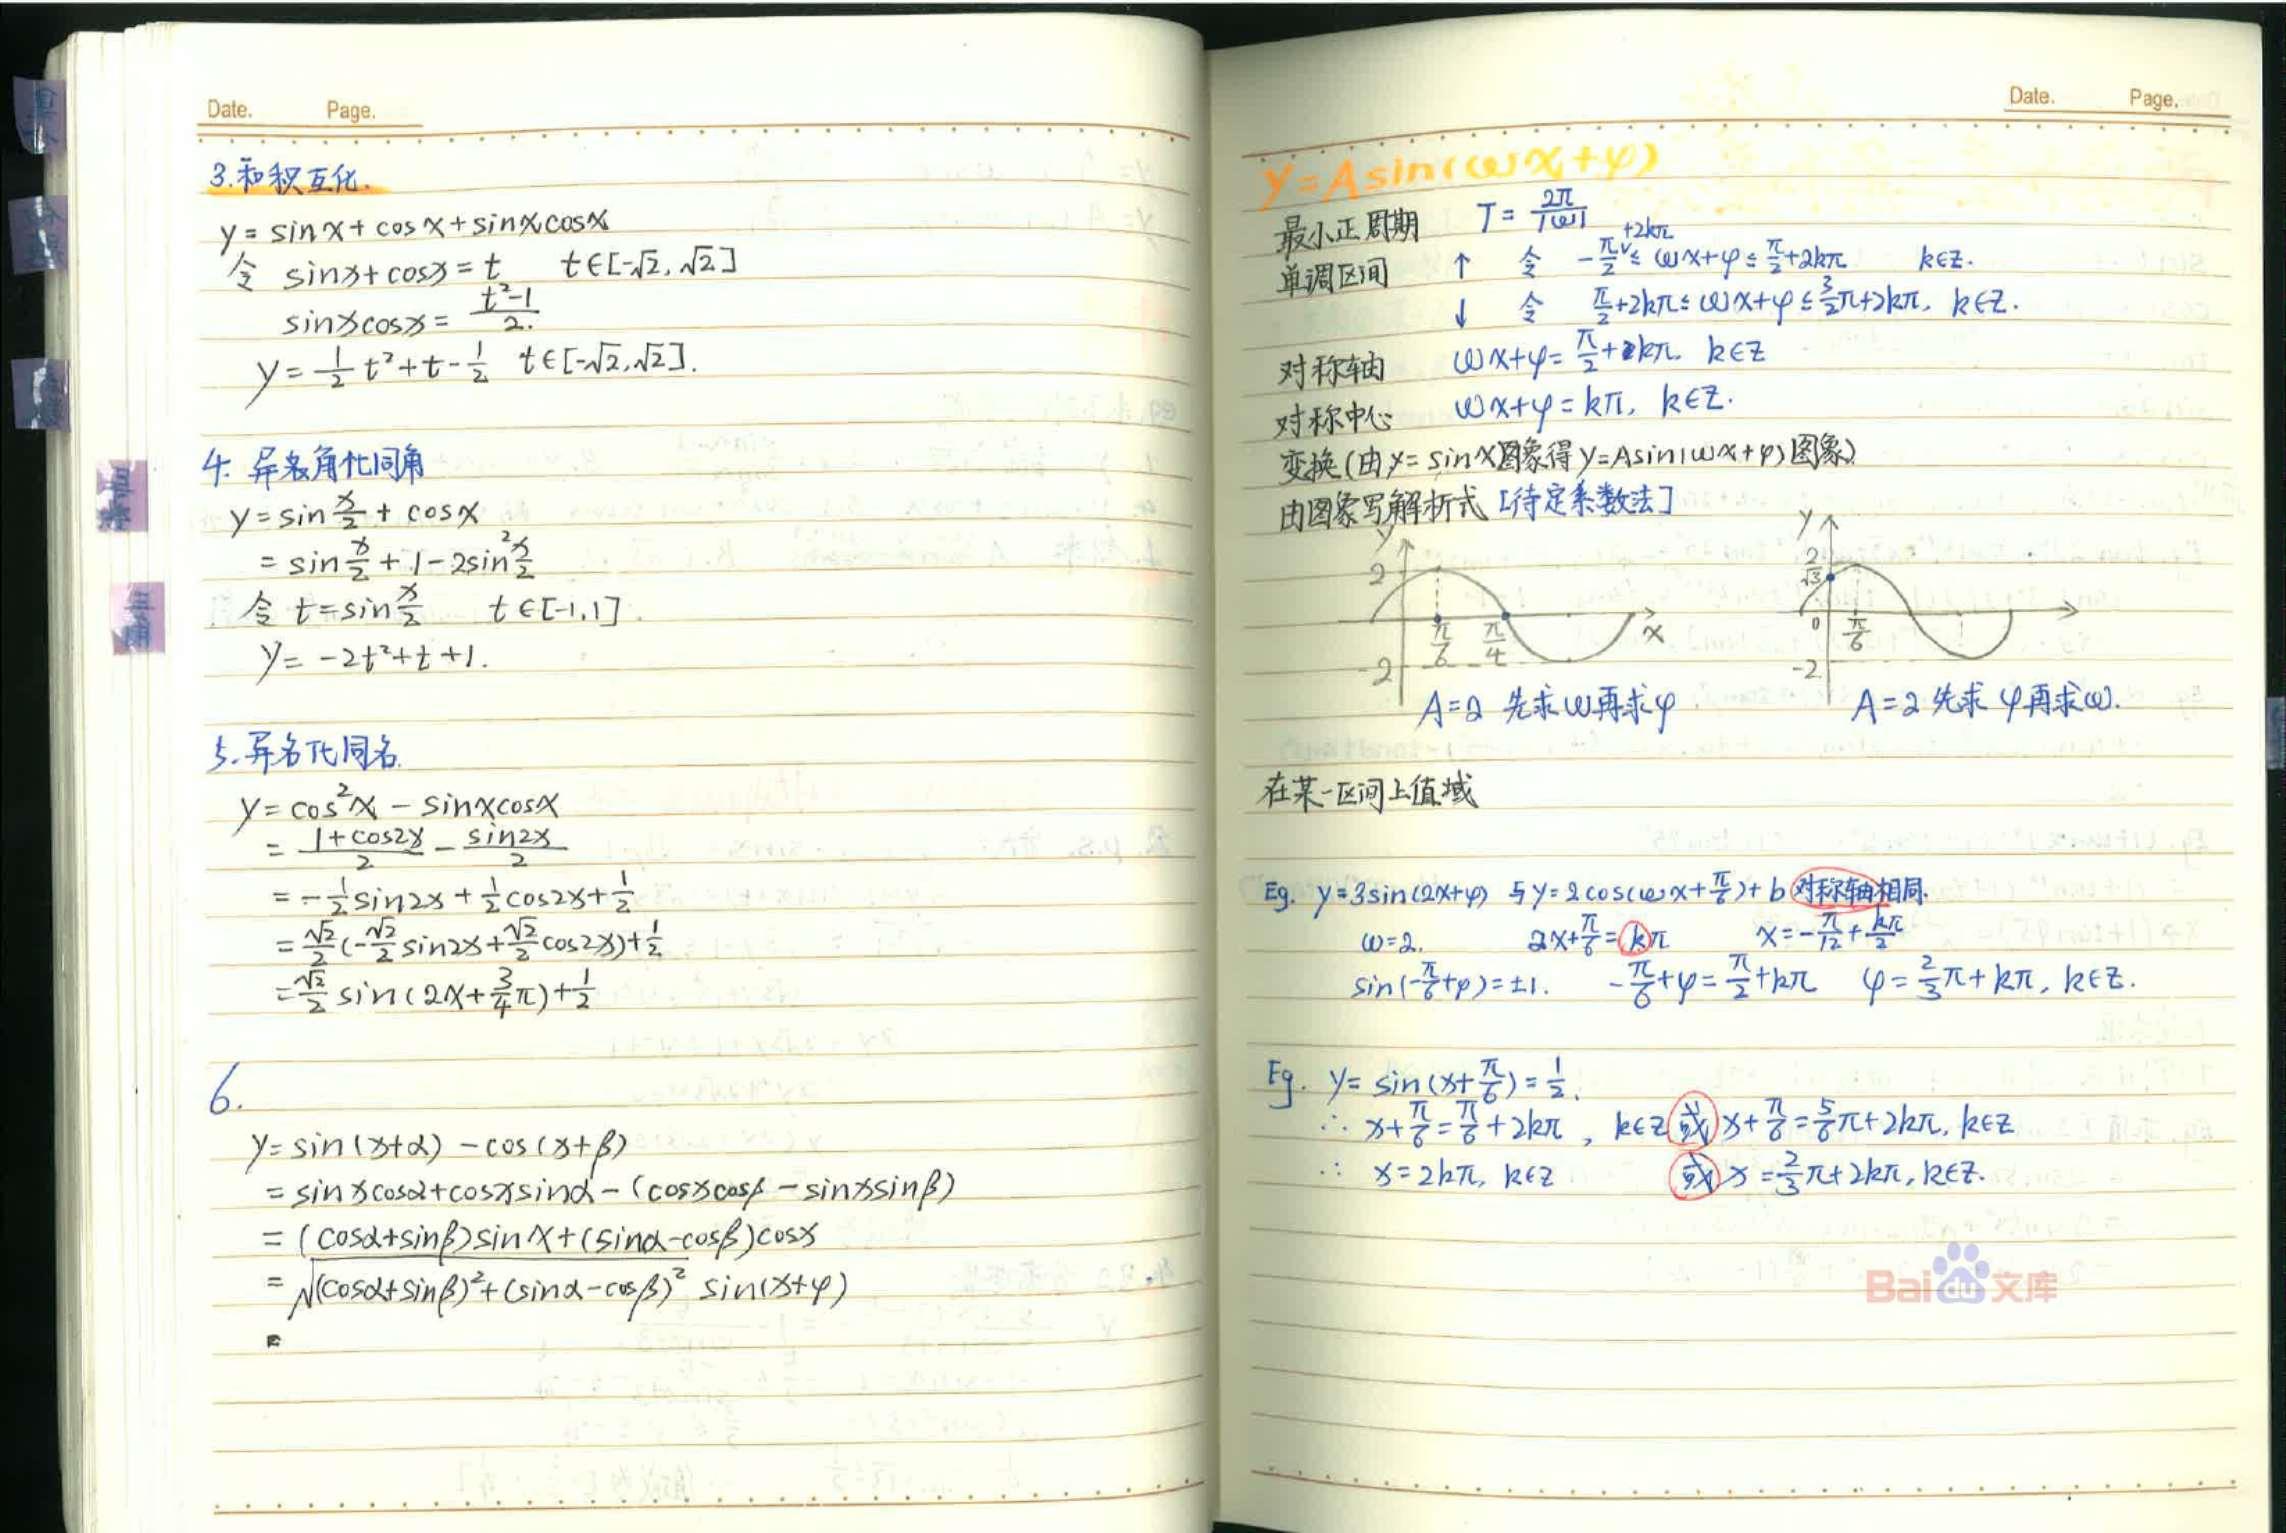 Date. Page.
3.和积互化.
y=sinx+cosx+sinxcosx
令 sinx+cosx=t t∈[-√2,√2]
sinxcosx=(t²-1)/2.
y=1/2 t²+t-1/2 t∈[-√2,√2].
4. 异名角化同角
y=sin x/2 + cosx
=sin x/2 +1-2sin² x/2
令 t=sin x/2 t∈[-1,1].
y=-2t²+t+1.
5.异名化同名.
y=cos²x-sinxcosx
=(1+cos2x)/2-sin2x/2
=-1/2 sin2x+1/2 cos2x+1/2
=√2/2(-√2/2 sin2x+√2/2 cos2x)+1/2
=√2/2 sin(2x+3/4π)+1/2
6.
y=sin(x+α)-cos(x+β)
=sinxcosα+cosxsinα-(cosxcosβ-sinxsinβ)
=(cosα+sinβ)sinx+(sinα-cosβ)cosx
=√((cosα+sinβ)²+(sinα-cosβ)²) sin(x+φ)
=
Date. Page.
y=Asin(ωx+φ)
最小正周期 T=2π/|ω|
单调区间 ↑ 令 -π/2+2kπ≤ωx+φ≤π/2+2kπ k∈Z.
↓ 令 π/2+2kπ≤ωx+φ≤3/2π+2kπ, k∈Z.
对称轴 ωx+φ=π/2+kπ. k∈Z
对称中心 ωx+φ=kπ, k∈Z.
变换(由y=sinx图象得y=Asin(ωx+φ)图象)
由图象写解析式[待定系数法]
y 2 π/6 π/4 x -2
y 2 √3 0 π/6 -2
A=2 先求ω再求φ A=2 先求φ再求ω.
在某一区间上值域
Eg. y=3sin(2x+φ) 与y=2cos(ωx+π/6)+b 对称轴相同.
ω=2. 2x+π/6=kπ x=-π/12+kπ/2
sin(-π/6+φ)=±1. -π/6+φ=π/2+kπ φ=2/3π+kπ, k∈Z.
Eg. y=sin(x+π/6)=1/2.
∴ x+π/6=π/6+2kπ, k∈Z 或 x+π/6=5/6π+2kπ, k∈Z
∴ x=2kπ, k∈Z 或 x=2/3π+2kπ, k∈Z.
Baidu文库